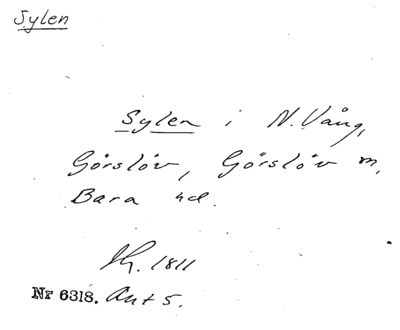 Sylen
Sylen i N. Vång,
Görslöv, Görslöv m,
Bara hd.
1811
Nr 6318. Akt 5.